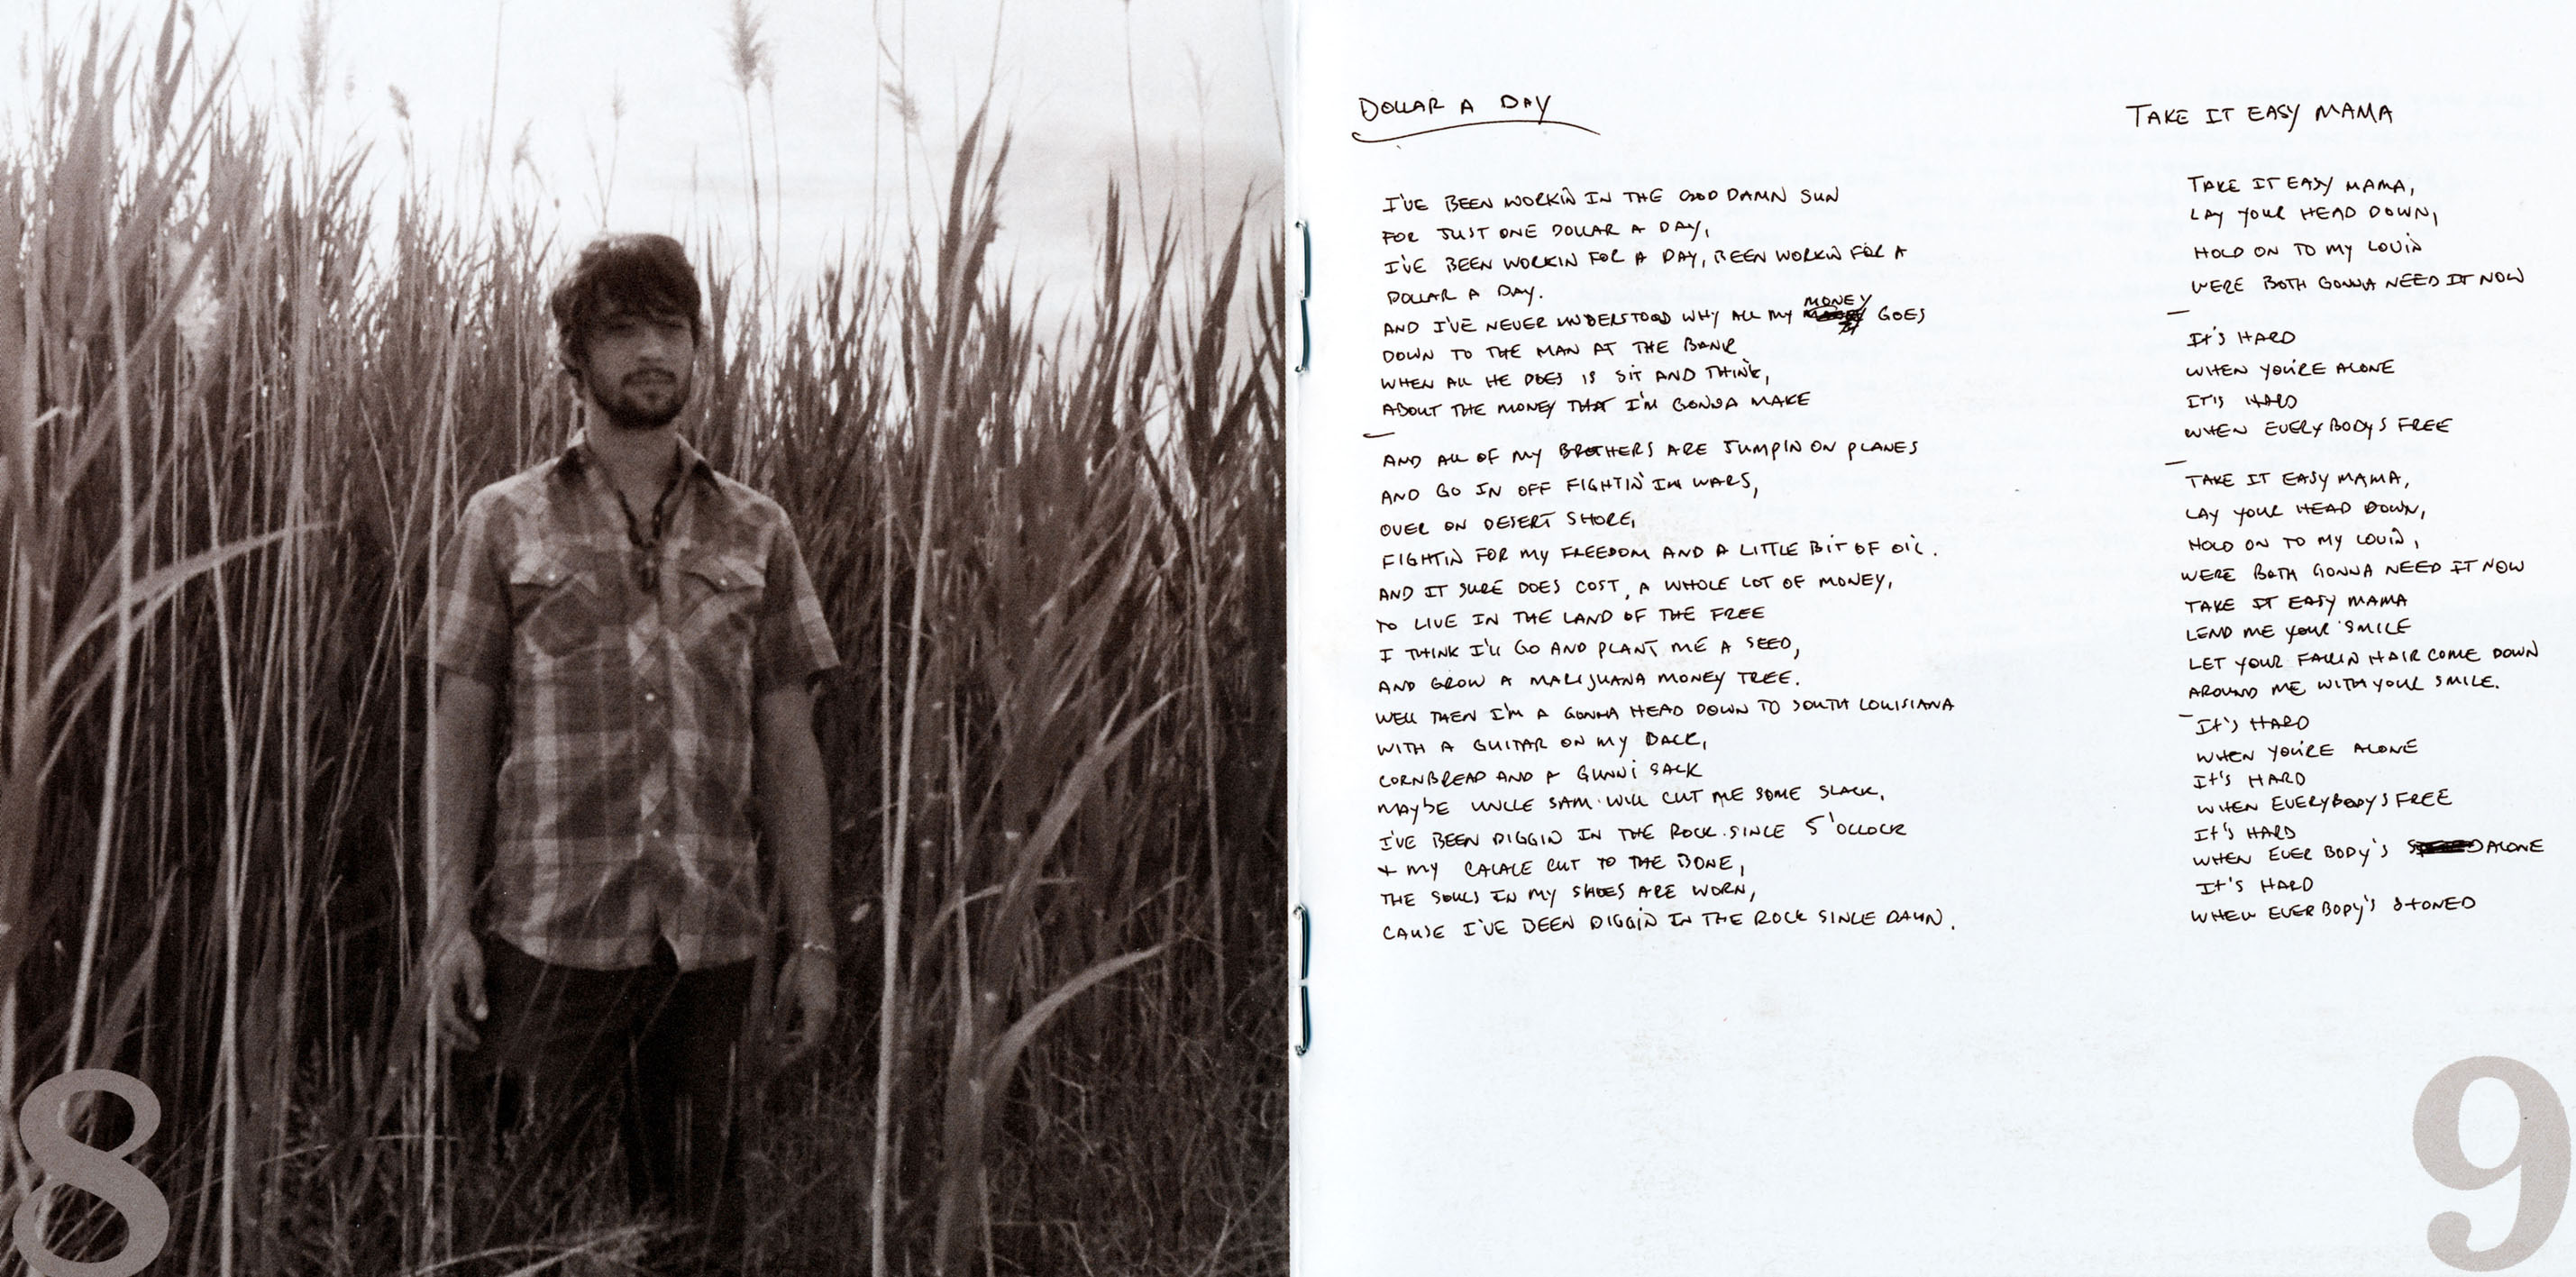 DOLLAR A DAY
I'VE BEEN WORKIN IN THE GOD DAMN SUN
FOR JUST ONE DOLLAR A DAY,
I'VE BEEN WORKIN FOR A DAY, BEEN WORKIN FOR A
DOLLAR A DAY.
AND I'VE NEVER UNDERSTOOD WHY ALL MY MONEY GOES
DOWN TO THE MAN AT THE BANK
WHEN ALL HE DOES IS SIT AND THINK,
ABOUT THE MONEY THAT I'M GONNA MAKE
AND ALL OF MY BROTHERS ARE JUMPIN ON PLANES
AND GO IN OFF FIGHTIN IN WARS,
OVER ON DESERT SHORE,
FIGHTIN FOR MY FREEDOM AND A LITTLE BIT OF OIL.
AND IT SURE DOES COST, A WHOLE LOT OF MONEY,
TO LIVE IN THE LAND OF THE FREE
I THINK I'LL GO AND PLANT ME A SEED,
AND GROW A MARIJUANA MONEY TREE.
WELL THEN I'M A GONNA HEAD DOWN TO SOUTH LOUISIANA
WITH A GUITAR ON MY BACK,
CORNBREAD AND A GUNNI SACK
MAYBE UNCLE SAM WILL CUT ME SOME SLACK,
I'VE BEEN DIGGIN IN THE ROCK SINCE 5 'OCLOCK
+ MY CALACE CUT TO THE BONE,
THE SOULS IN MY SHOES ARE WORN,
CAUSE I'VE BEEN DIGGIN IN THE ROCK SINCE DAWN.
TAKE IT EASY MAMA
TAKE IT EASY MAMA,
LAY YOUR HEAD DOWN,
HOLD ON TO MY LOVIN
WERE BOTH GONNA NEED IT NOW
IT'S HARD
WHEN YOU'RE ALONE
IT'S HARD
WHEN EVERYBODYS FREE
TAKE IT EASY MAMA,
LAY YOUR HEAD DOWN,
HOLD ON TO MY LOVIN,
WERE BOTH GONNA NEED IT NOW
TAKE IT EASY MAMA
LEND ME YOUR SMILE
LET YOUR FALLIN HAIR COME DOWN
AROUND ME WITH YOUR SMILE.
IT'S HARD
WHEN YOU'RE ALONE
IT'S HARD
WHEN EVERYBODYS FREE
IT'S HARD
WHEN EVER BODY'S ALONE
IT'S HARD
WHEN EVER BODY'S STONED
8
9